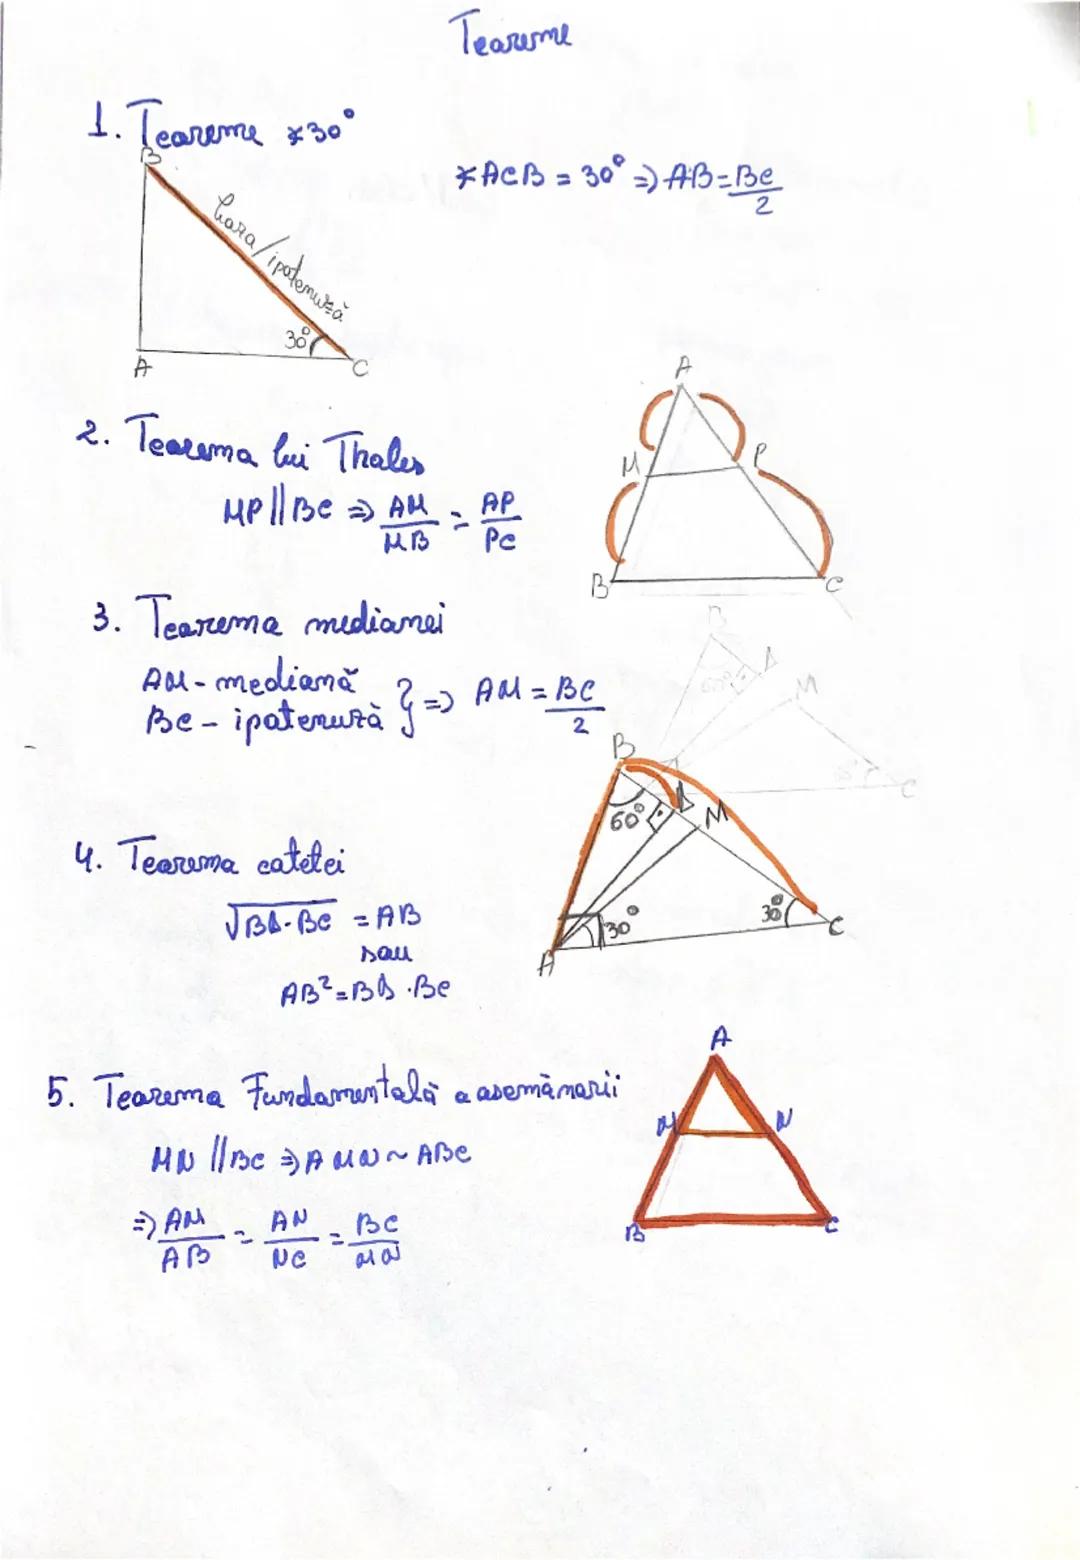 Teoreme
1. Teorema ∢30°
∢ACB = 30° => AB = BC/2
B
Cara/ipotenuză
30°
A
C
2. Teorema lui Thales
MP || BC => AM/MB = AP/PC
A
M
P
B
C
3. Teorema medianei
AM - mediană
BC - ipotenuză } => AM = BC/2
B
D
M
C
B
D
M
60°
30°
30°
A
C
4. Teorema catetei
√BD·BC = AB
sau
AB² = BD·BC
5. Teorema Fundamentală a asemănarii
MN || BC => AMN ~ ABC
=> AM/AB = AN/NC = BC/MN
A
M
N
B
C